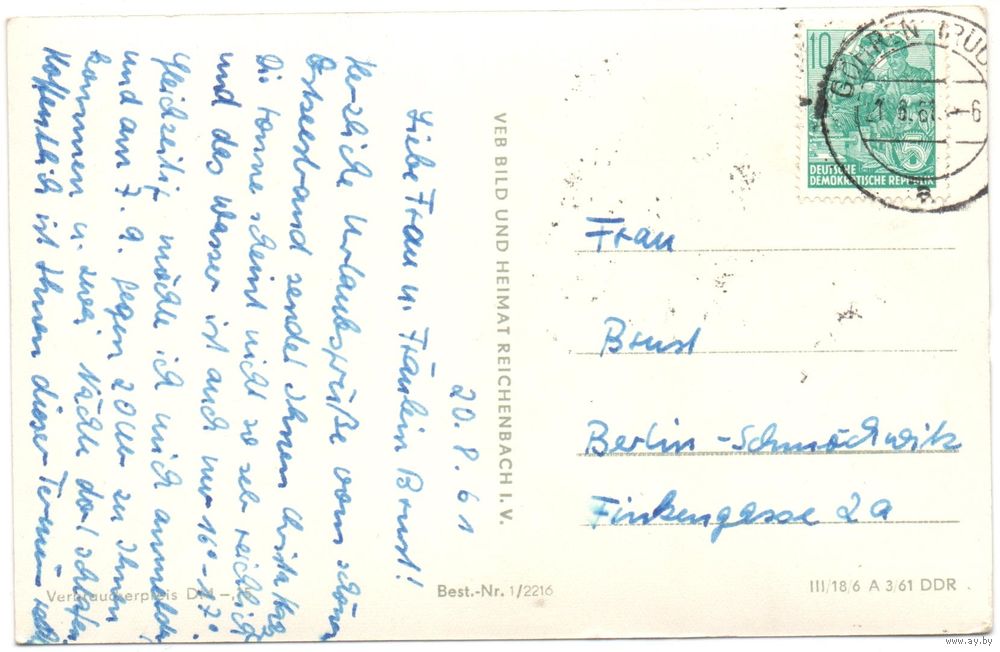 20.8.61
Liebe Frau u. Fräulein Brust!
Herzliche Urlaubsgrüße vom schönen
Ostseestrand sendet Ihnen Christa
Die Sonne scheint nicht so sehr reichlich
und das Wasser ist auch nur 16°-17°
Gleichzeitig möchte ich mich anmelden
und am 7.9. gegen 20 Uhr zu Ihnen
kommen u. zwei Nächte dort schlafen
Hoffentlich ist Ihnen dieser Termin
VEB BILD UND HEIMAT REICHENBACH I. V.
10
DEUTSCHE
DEMOKRATISCHE REPUBLIK
5
GÖHREN (RÜG
-6
a
Frau
Brust
Berlin-Schmöckwitz
Finkengasse 2a
Verbraucherpreis
Best.-Nr. 1/2216
III/18/6 A 3/61 DDR
www.ay.by